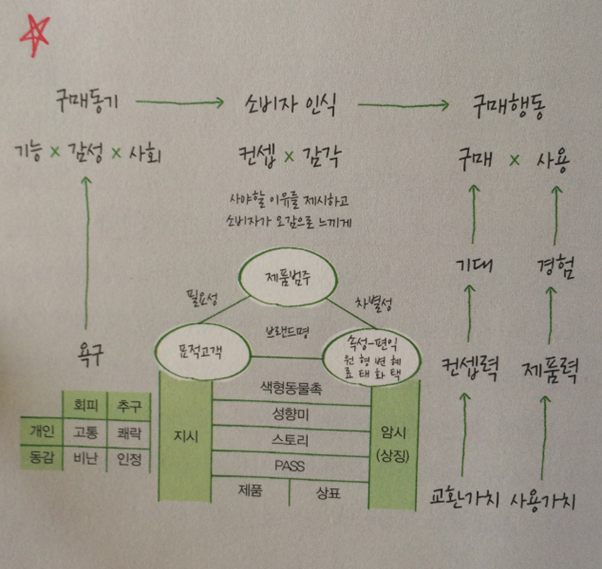 구매동기 → 소비자 인식 → 구매행동
기능 × 감성 × 사회
컨셉 × 감각
구매 × 사용
사야할 이유를 제시하고
소비자가 오감으로 느끼게
제품범주
필요성
차별성
브랜드명
표적고객
속성-편익
원 형 변 혜
료 태 화 택
기대
경험
욕구
컨셉력
제품력
회피 추구
개인 고통 쾌락
동감 비난 인정
지시
색형동물촉
성향미
스토리
PASS
제품 상표
암시
(상징)
교환가치 사용가치